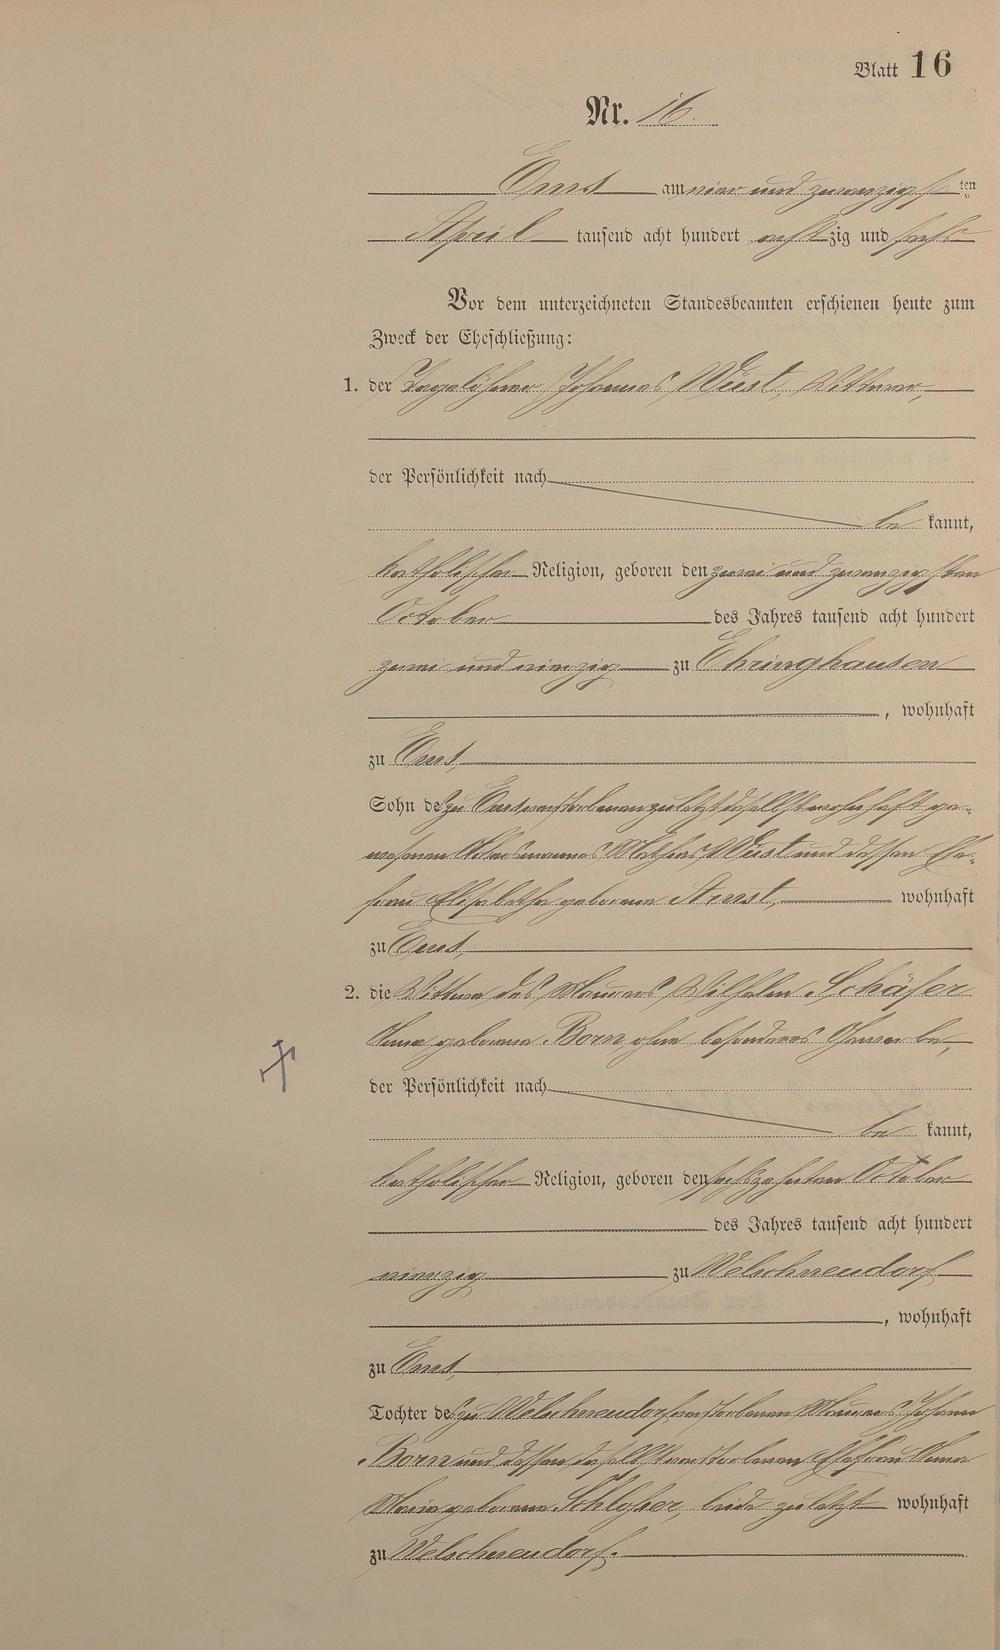 Blatt 16
Nr. 16.
Ems am vier und zwanzigsten ten
April tausend acht hundert achtzig und sechs
Vor dem unterzeichneten Standesbeamten erschienen heute zum
Zweck der Eheschließung:
1. der Tagelöhner Johannes Wüst, Wittwer,
der Persönlichkeit nach
be kannt,
katholischer Religion, geboren den zwei und zwanzigsten
October des Jahres tausend acht hundert
zwei und vierzig zu Ehringhausen
, wohnhaft
zu Ems,
Sohn des zu Ems verstorbenen zuletzt daselbst wohnhaft ge-
wesenen Wüst und dessen Ehe-
frau Elisabetha geborene wohnhaft
zu Ems,
2. die Wittwe des Maurers Wilhelm Schäfer
Anna geborene Born, ohne besonderes Gewerbe,
der Persönlichkeit nach
be kannt,
katholischer Religion, geboren den sechszehnten October
des Jahres tausend acht hundert
vierzig zu Welschneudorf
, wohnhaft
zu Ems,
Tochter des zu Welschneudorf verstorbenen Maurers Johann
Born und dessen daselbst verstorbenen Ehefrau Anna
Maria geborene Schloßer, beide zuletzt wohnhaft
zu Welschneudorf.